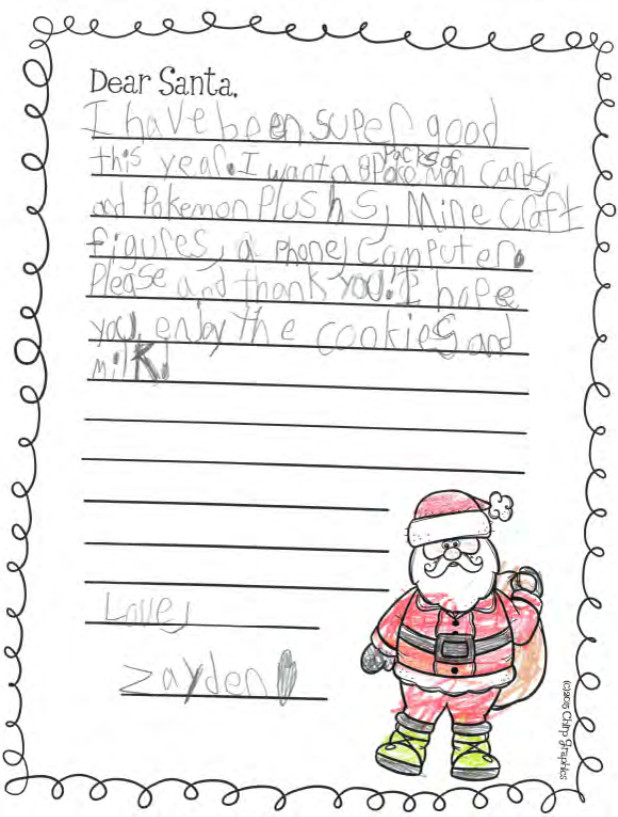 Dear Santa,
I have been super good
this year. I want a 8 packs of Pokemon cards,
and Pokemon Plushs, Minecraft
figures, a phone, Computer.
Please and thank you. I hope
you enjoy the cookies and
milk!
Love,
Zayden
(c)2015 Chirp Graphics